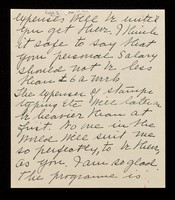 expenses will be until
you get there. I think
it safe to say that
your personal Salary
should not be less
than £6 a week
The expenses of stamps
typing etc will
be heavier than at
first. No one in the
World will suit me
so perfectly, to be there,
as you. I am so glad
the programme is